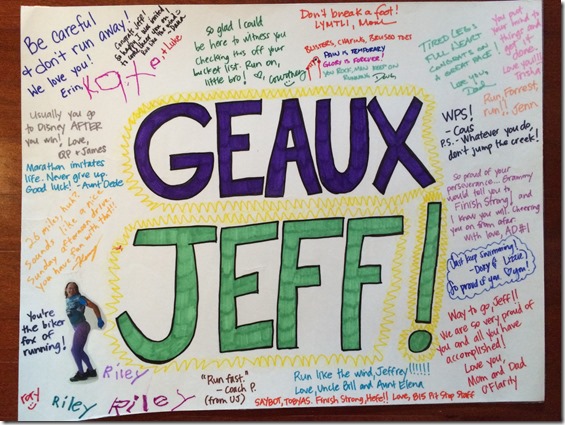 Be careful
& don't run away!
We love you!
Erin,
so glad I could
be here to witness you
Checking this off your
bucket list. Run on,
little bro!
Courtney
Don't break a foot!
LYMTLI, Mom
BLISTERS, CHAFING, BRUISED TOES
PAIN IS TEMPORARY
GLORY IS FOREVER!
YOU ROCK, NOW KEEP ON
RUNNING
TIRED LEGS
FULL HEART
CONGRATS ON
A GREAT RACE!
Love you,
Dad
You put
your mind to
things and
get it
done.
Love you!!
Trisha
Run, Forrest,
run!! Jenn
Usually you go
to Disney AFTER
you win! Love,
+ James
Marathon imitates
life. Never give up.
Good luck! - Aunt Dede
26 miles, huh?
Sounds like a nice
Sunday afternoon drive.
You have fun with that!!
WPS!
- Cous
P.S. - Whatever you do,
don't jump the creek!
So proud of your
perseverance... Grammy
would tell you to
Finish Strong! and
I know you will. Cheering
you on from afar
with love, AD#1
Just keep swimming!
- Dory & Lizzie
So proud if you ♡ ym!
GEAUX
JEFF!
You're
the biker
fox of
running!
Way to go, Jeff!!
We are so very proud of
you and all you have
accomplished!
Love you,
Mom and Dad
O'Flarity
Rory
Riley
Riley
Riley
"Run fast."
- Coach P.
(from UJ)
Run like the wind, Jeffrey!!!!!!
Love, Uncle Bill and Aunt Elena
SAYBOT, TOBYAS. Finish Strong, Hefe!! Love, B15 Pit Stop Staff